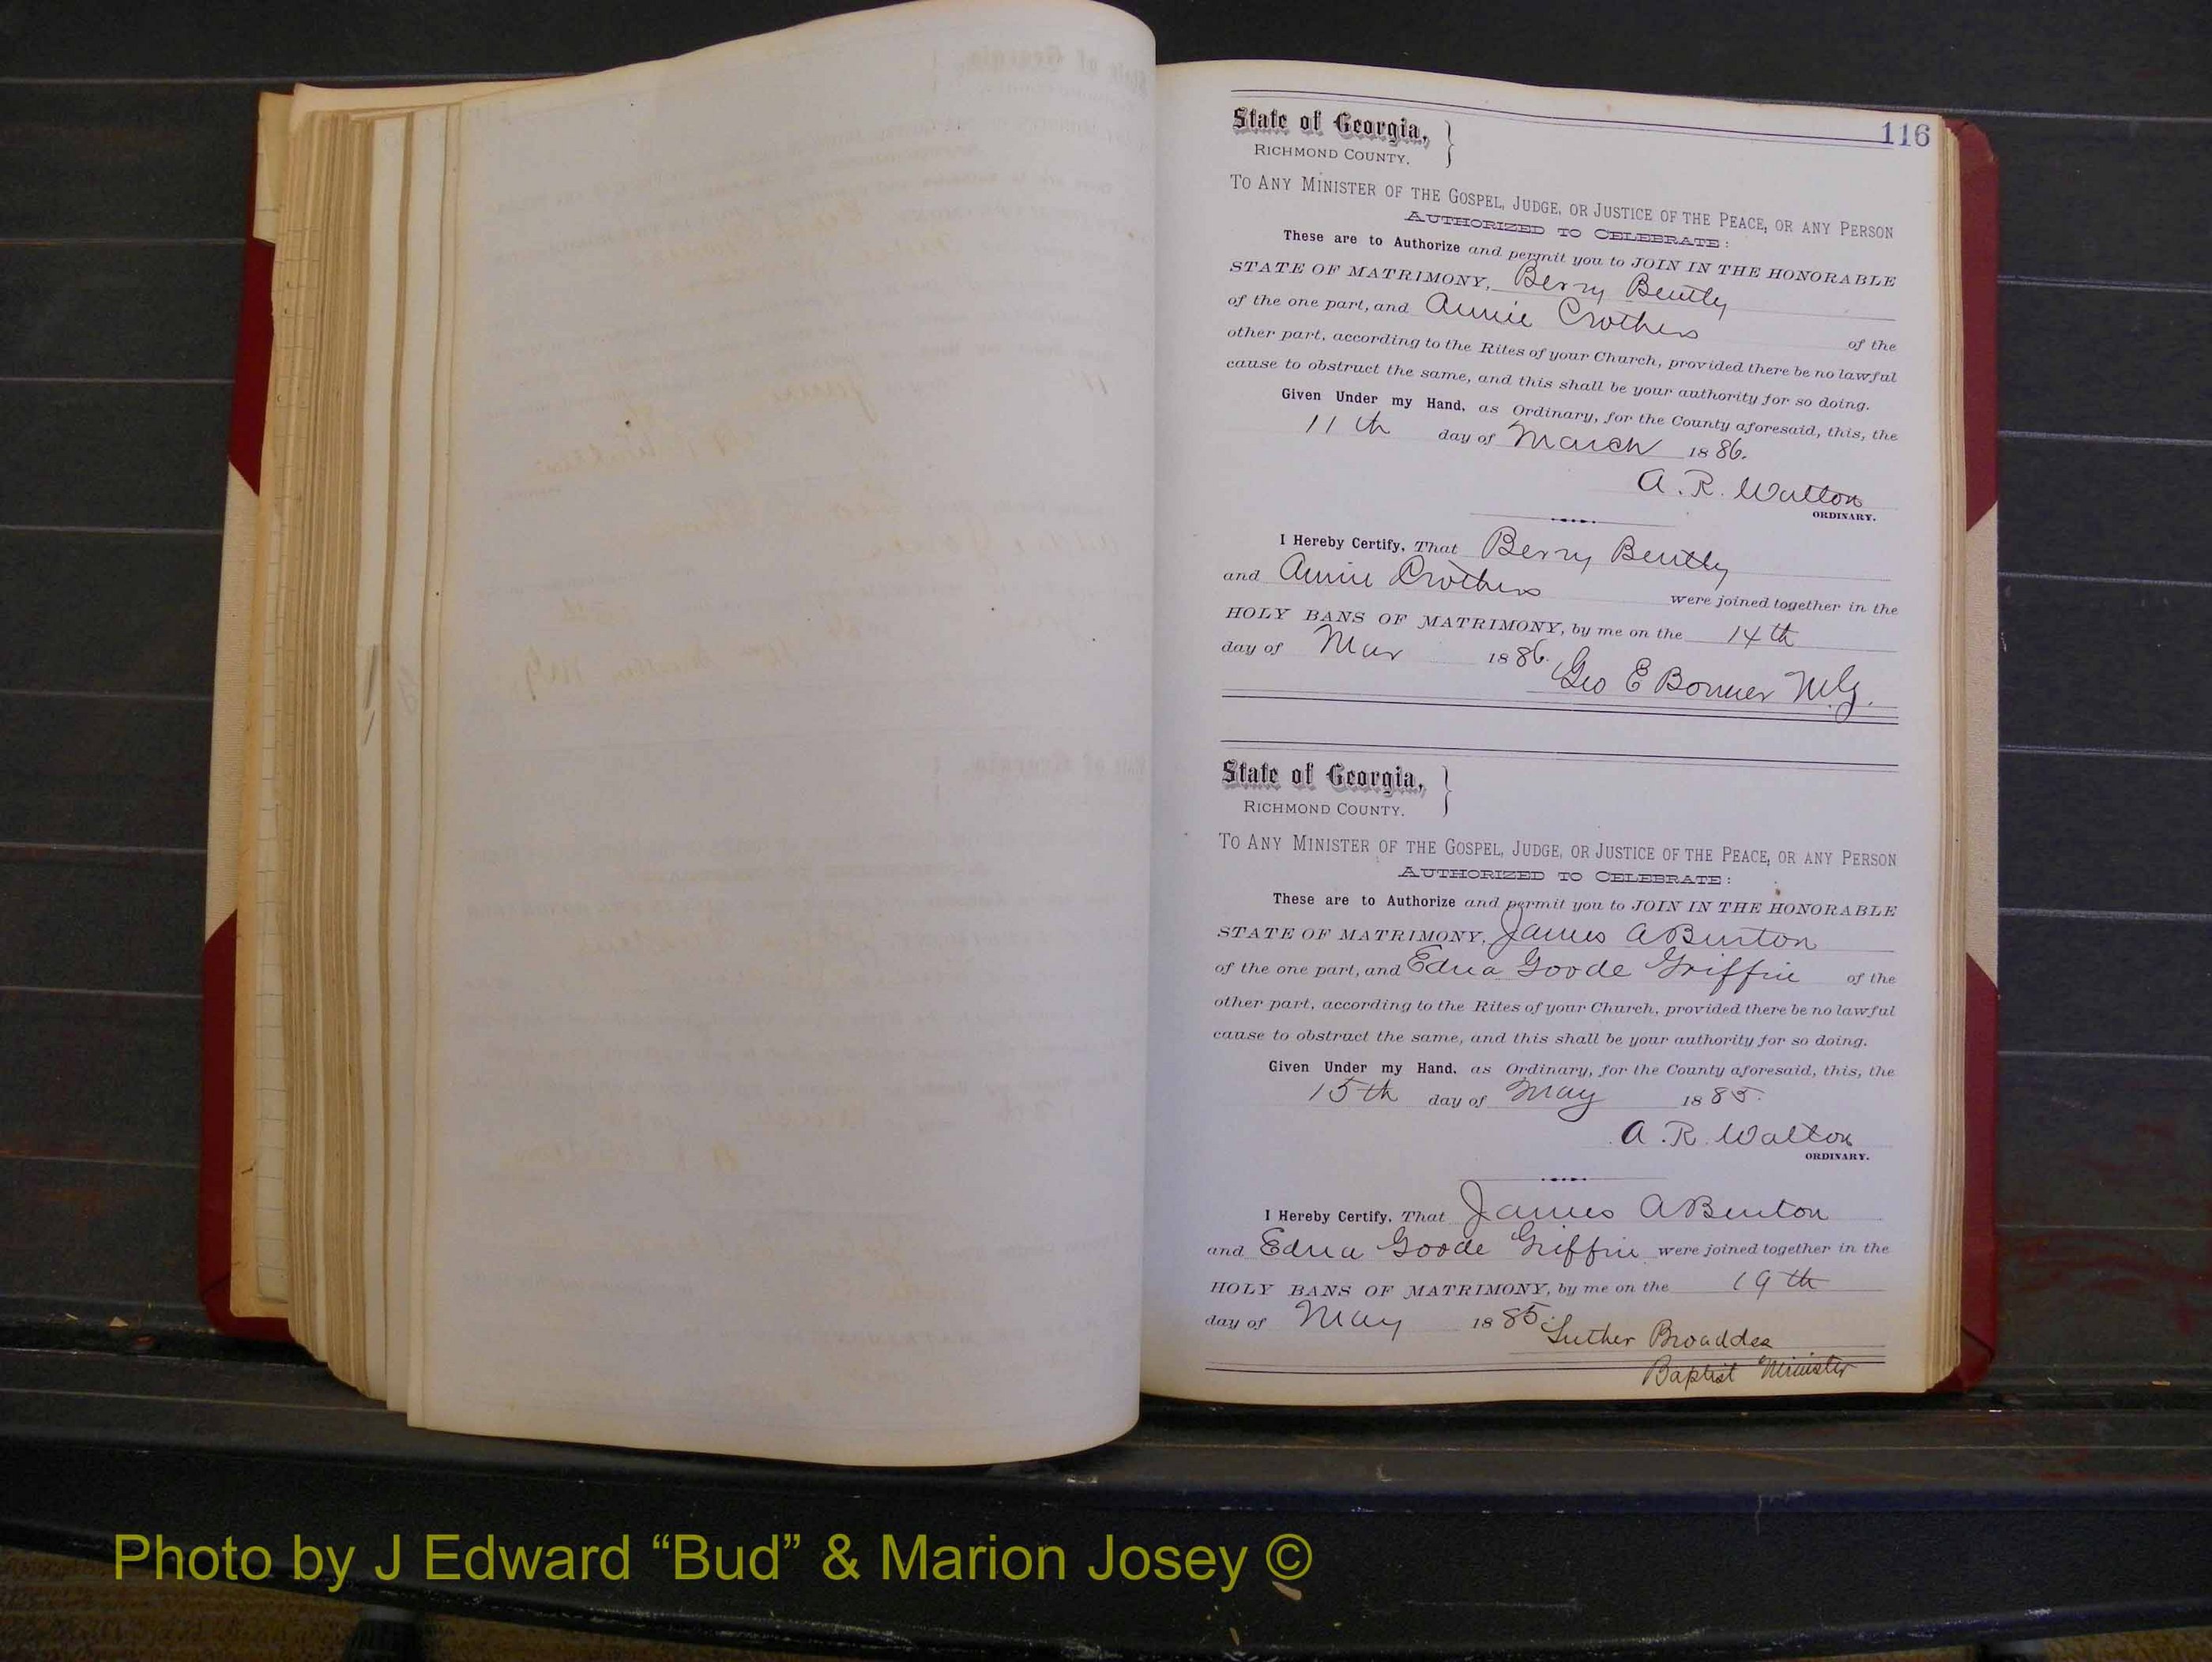 116
State of Georgia,
RICHMOND COUNTY.
TO ANY MINISTER OF THE GOSPEL, JUDGE, OR JUSTICE OF THE PEACE, OR ANY PERSON
AUTHORIZED TO CELEBRATE:
These are to Authorize and permit you to JOIN IN THE HONORABLE
STATE OF MATRIMONY, Berry Bently
of the one part, and Annie Crothers
of the
other part, according to the Rites of your Church, provided there be no lawful
cause to obstruct the same, and this shall be your authority for so doing.
Given Under my Hand, as Ordinary, for the County aforesaid, this, the
11th day of March 1886.
A. R. Walton
ORDINARY.
I Hereby Certify, That Berry Bently
and Annie Crothers were joined together in the
HOLY BANS OF MATRIMONY, by me on the 14th
day of Mar 1886.
Geo E Bonner M.G.
State of Georgia,
RICHMOND COUNTY.
TO ANY MINISTER OF THE GOSPEL, JUDGE, OR JUSTICE OF THE PEACE, OR ANY PERSON
AUTHORIZED TO CELEBRATE:
These are to Authorize and permit you to JOIN IN THE HONORABLE
STATE OF MATRIMONY, James A Benton
of the one part, and Edna Goode Griffin of the
other part, according to the Rites of your Church, provided there be no lawful
cause to obstruct the same, and this shall be your authority for so doing.
Given Under my Hand, as Ordinary, for the County aforesaid, this, the
15th day of May 1885.
A. R. Walton
ORDINARY.
I Hereby Certify, That James A Benton
and Edna Goode Griffin were joined together in the
HOLY BANS OF MATRIMONY, by me on the 19th
day of May 1885.
Luther Broaddus
Baptist Minister
Photo by J Edward “Bud” & Marion Josey ©